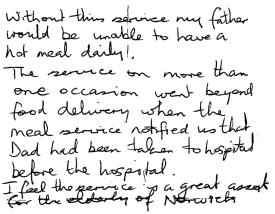 Without this service my father
would be unable to have a
hot meal daily!.
The service on more than
one occasion went beyond
food delivery when the
meal service notified us that
Dad had been taken to hospital
before the hospital.
I feel the service is a great asset
for the elderly of Norwich